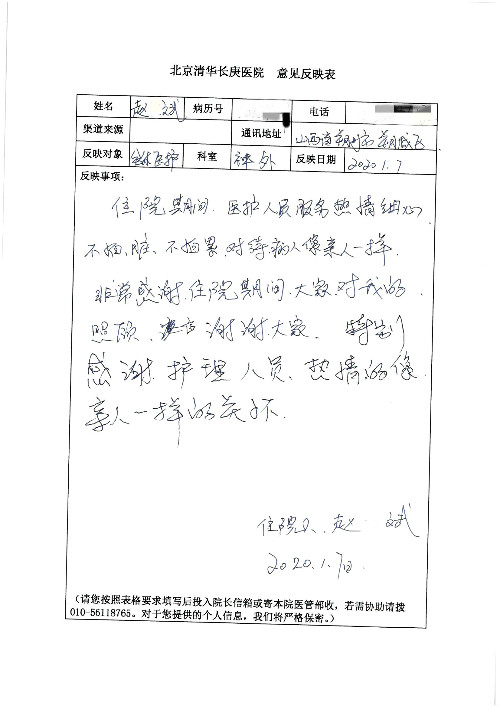 北京清华长庚医院 意见反映表
姓名 赵 斌 病历号 电话
渠道来源 通讯地址 山西省朔州市朔城区
反映对象 全体医护 科室 神外 反映日期 2020.1.7
反映事项：
住院期间，医护人员服务热情细心
不怕脏、不怕累对待病人像亲人一样，
非常感谢住院期间，大家对我的
照顾， 谢谢大家， 特别
感谢护理人员、热情的像
亲人一样的关怀.
住院人 赵 斌
2020.1.7日
(请您按照表格要求填写后投入院长信箱或寄本院医管部收，若需协助请拨
010-56118765。对于您提供的个人信息，我们将严格保密。)